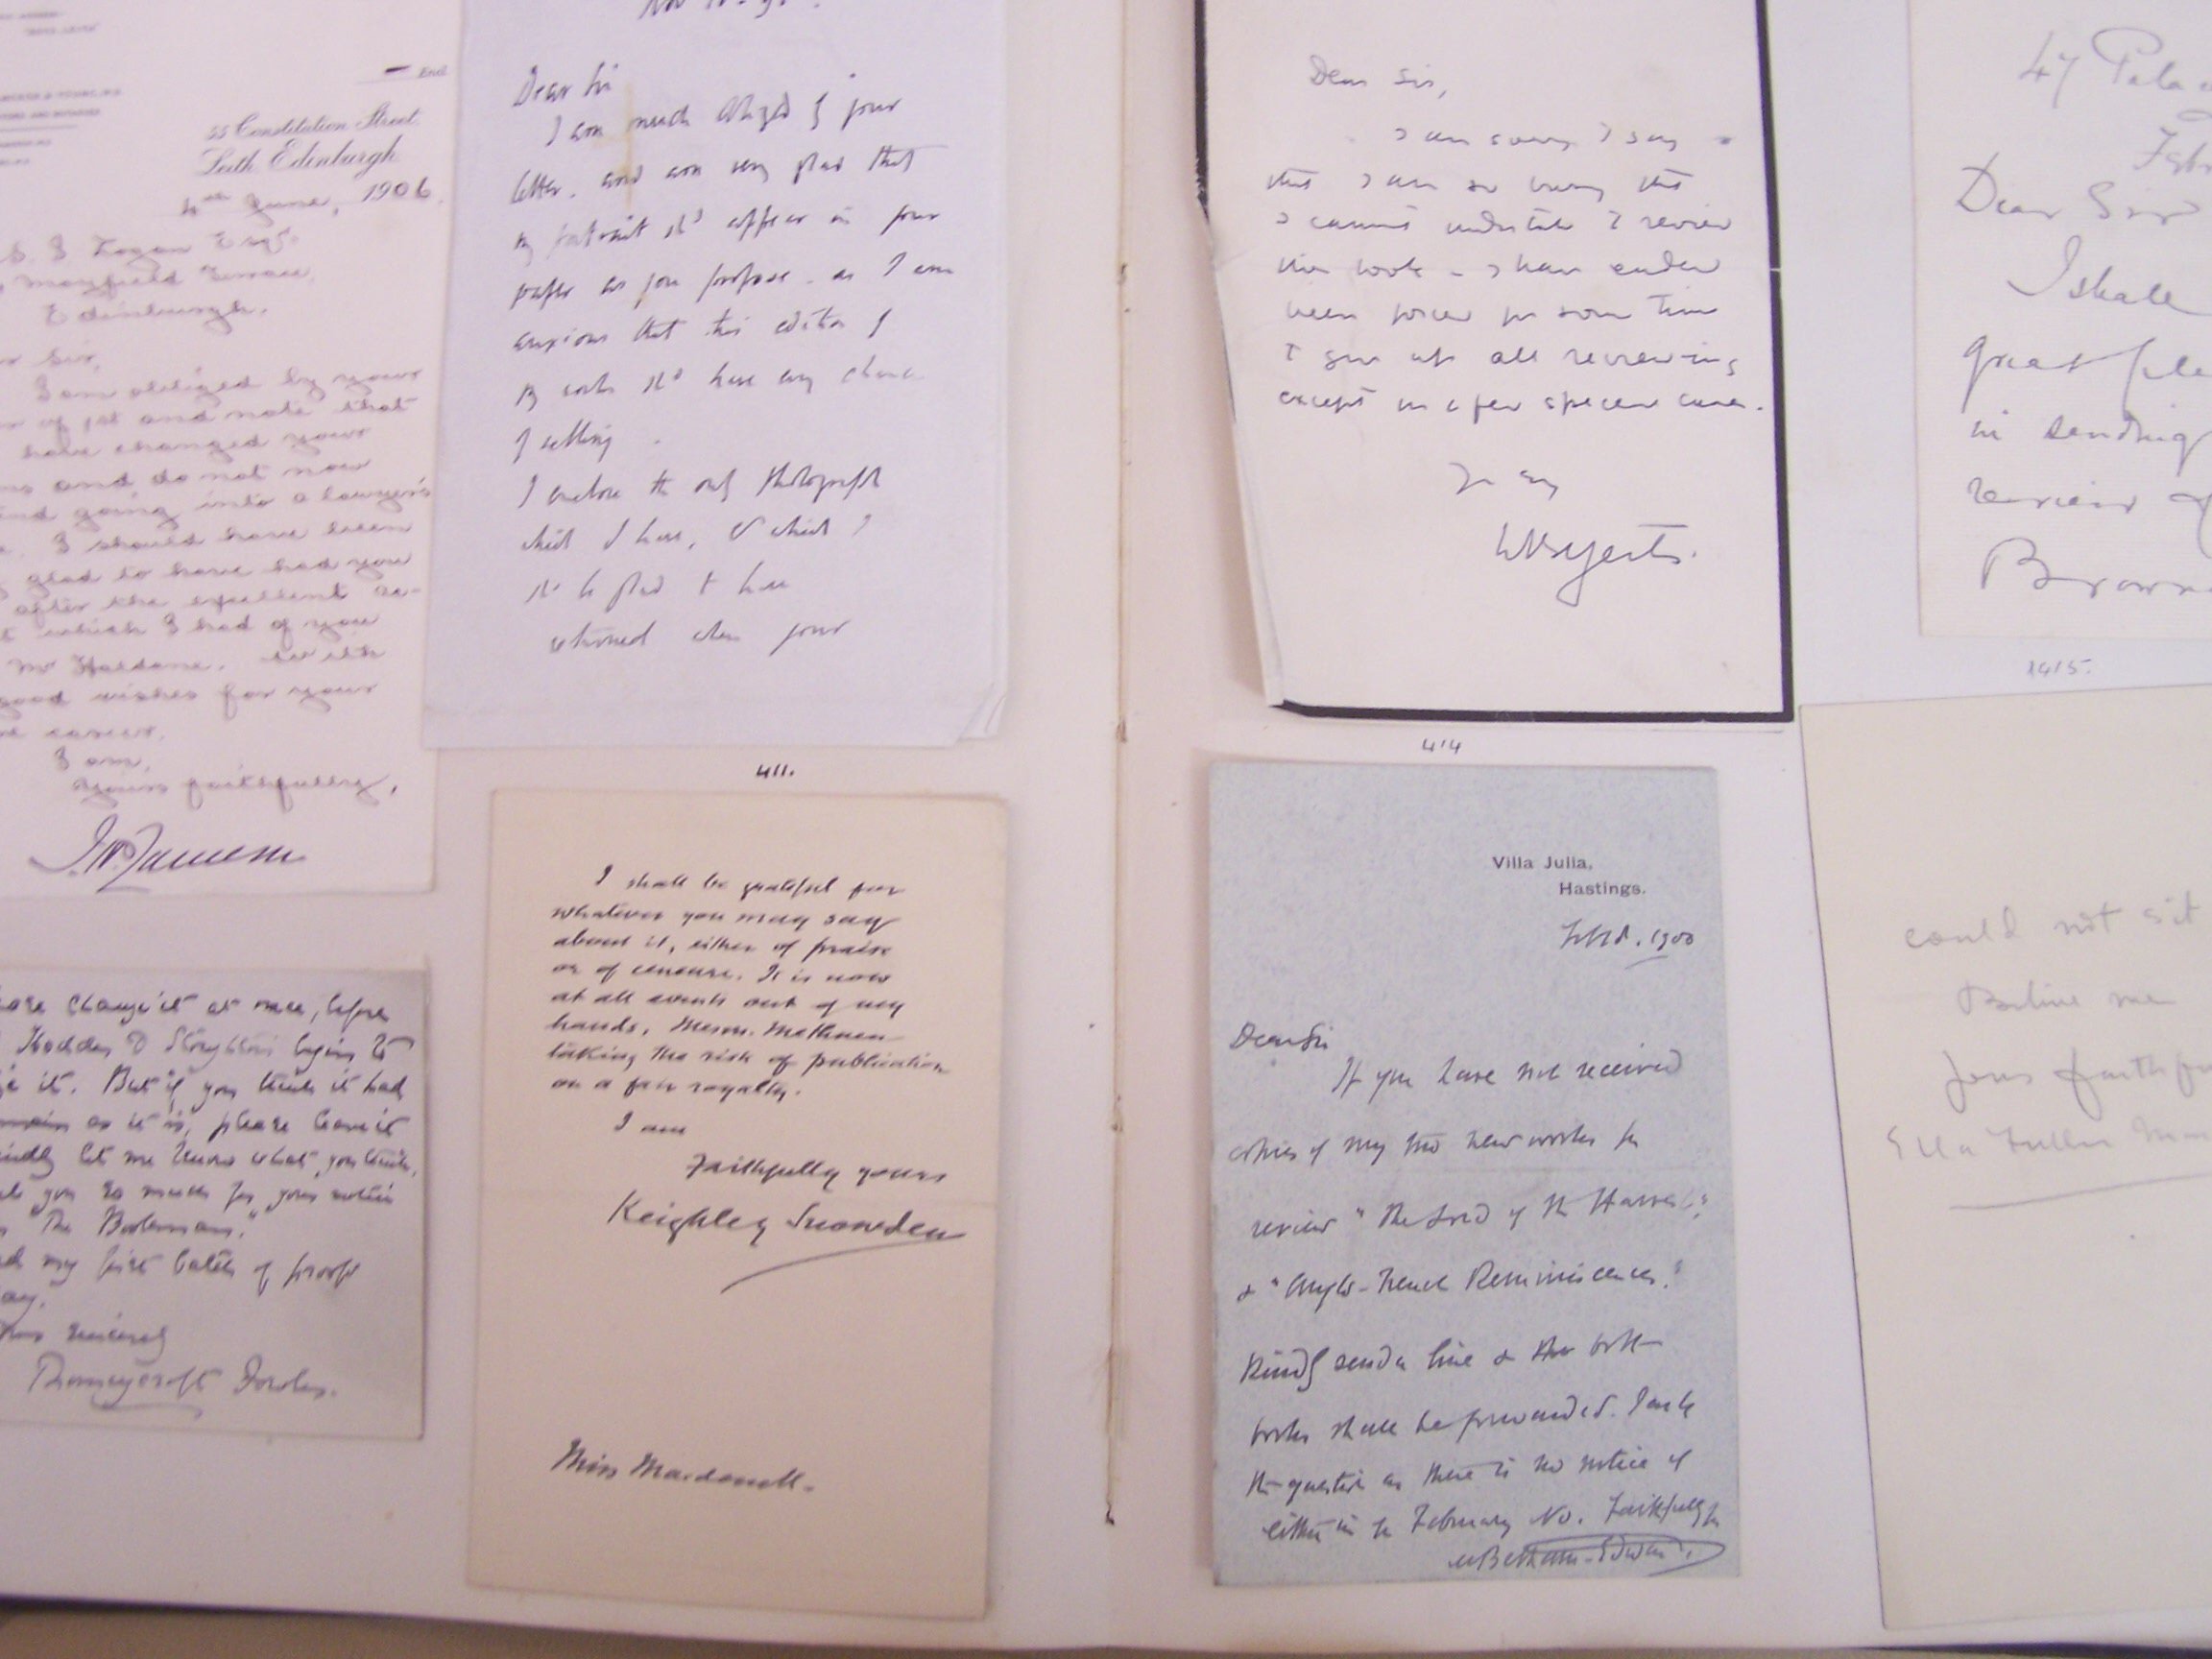 End.
55 Constitution Street
Leith Edinburgh
4th June, 1906.
Logan Esq.
Mayfield Terrace,
Edinburgh.
Sir,
I am obliged by your
of 1st and note that
have changed your
and do not now
going into a lawyer's
I should have been
glad to have had you
after the excellent ac-
which I had of you
Mr Haldane. With
good wishes for your
career.
I am,
Yours faithfully,
change it at once, before
Hodder & Stoughton begin to
it. But if you think it had
as it is, please leave it
let me know what you think.
you so much for your notice
"The Bookman."
my first batch of proofs
Thorneycroft Fowler.
Dear Sir
I am much obliged of your
letter, and am very glad that
my portrait shd appear in your
paper as you propose - as I am
anxious that this edition of
my works shd have any chance
of selling.
I enclose the only photograph
which I have, & which I
shd be glad to have
returned when your
411.
I shall be grateful for
whatever you may say
about it, either of praise
or of censure. It is now
at all events out of my
hands, Messrs. Methuen
taking the risk of publication
on a fair royalty.
I am
Faithfully yours
Keighley Snowden
Miss Macdonell.
Dear Sir,
I am sorry to say
that I am so busy that
I cannot undertake to review
the book - I have indeed
been forced for some time
to give up all reviewing
except in a few special cases.
WB Yeats.
414
Villa Julia,
Hastings.
1900
Dear Sir
If you have not received
copies of my two new works for
review "The Lord of the Harvest"
& "Anglo-French Reminiscences."
Kindly send a line & the both
books shall be forwarded. I ask
the question as there is no notice of
either in the February No. Faithfully yrs
M Betham-Edwards.
47
Dear Sir
I shall
great
in sending
review of
415.
could not sit
Believe me
Yours
Ella Fuller